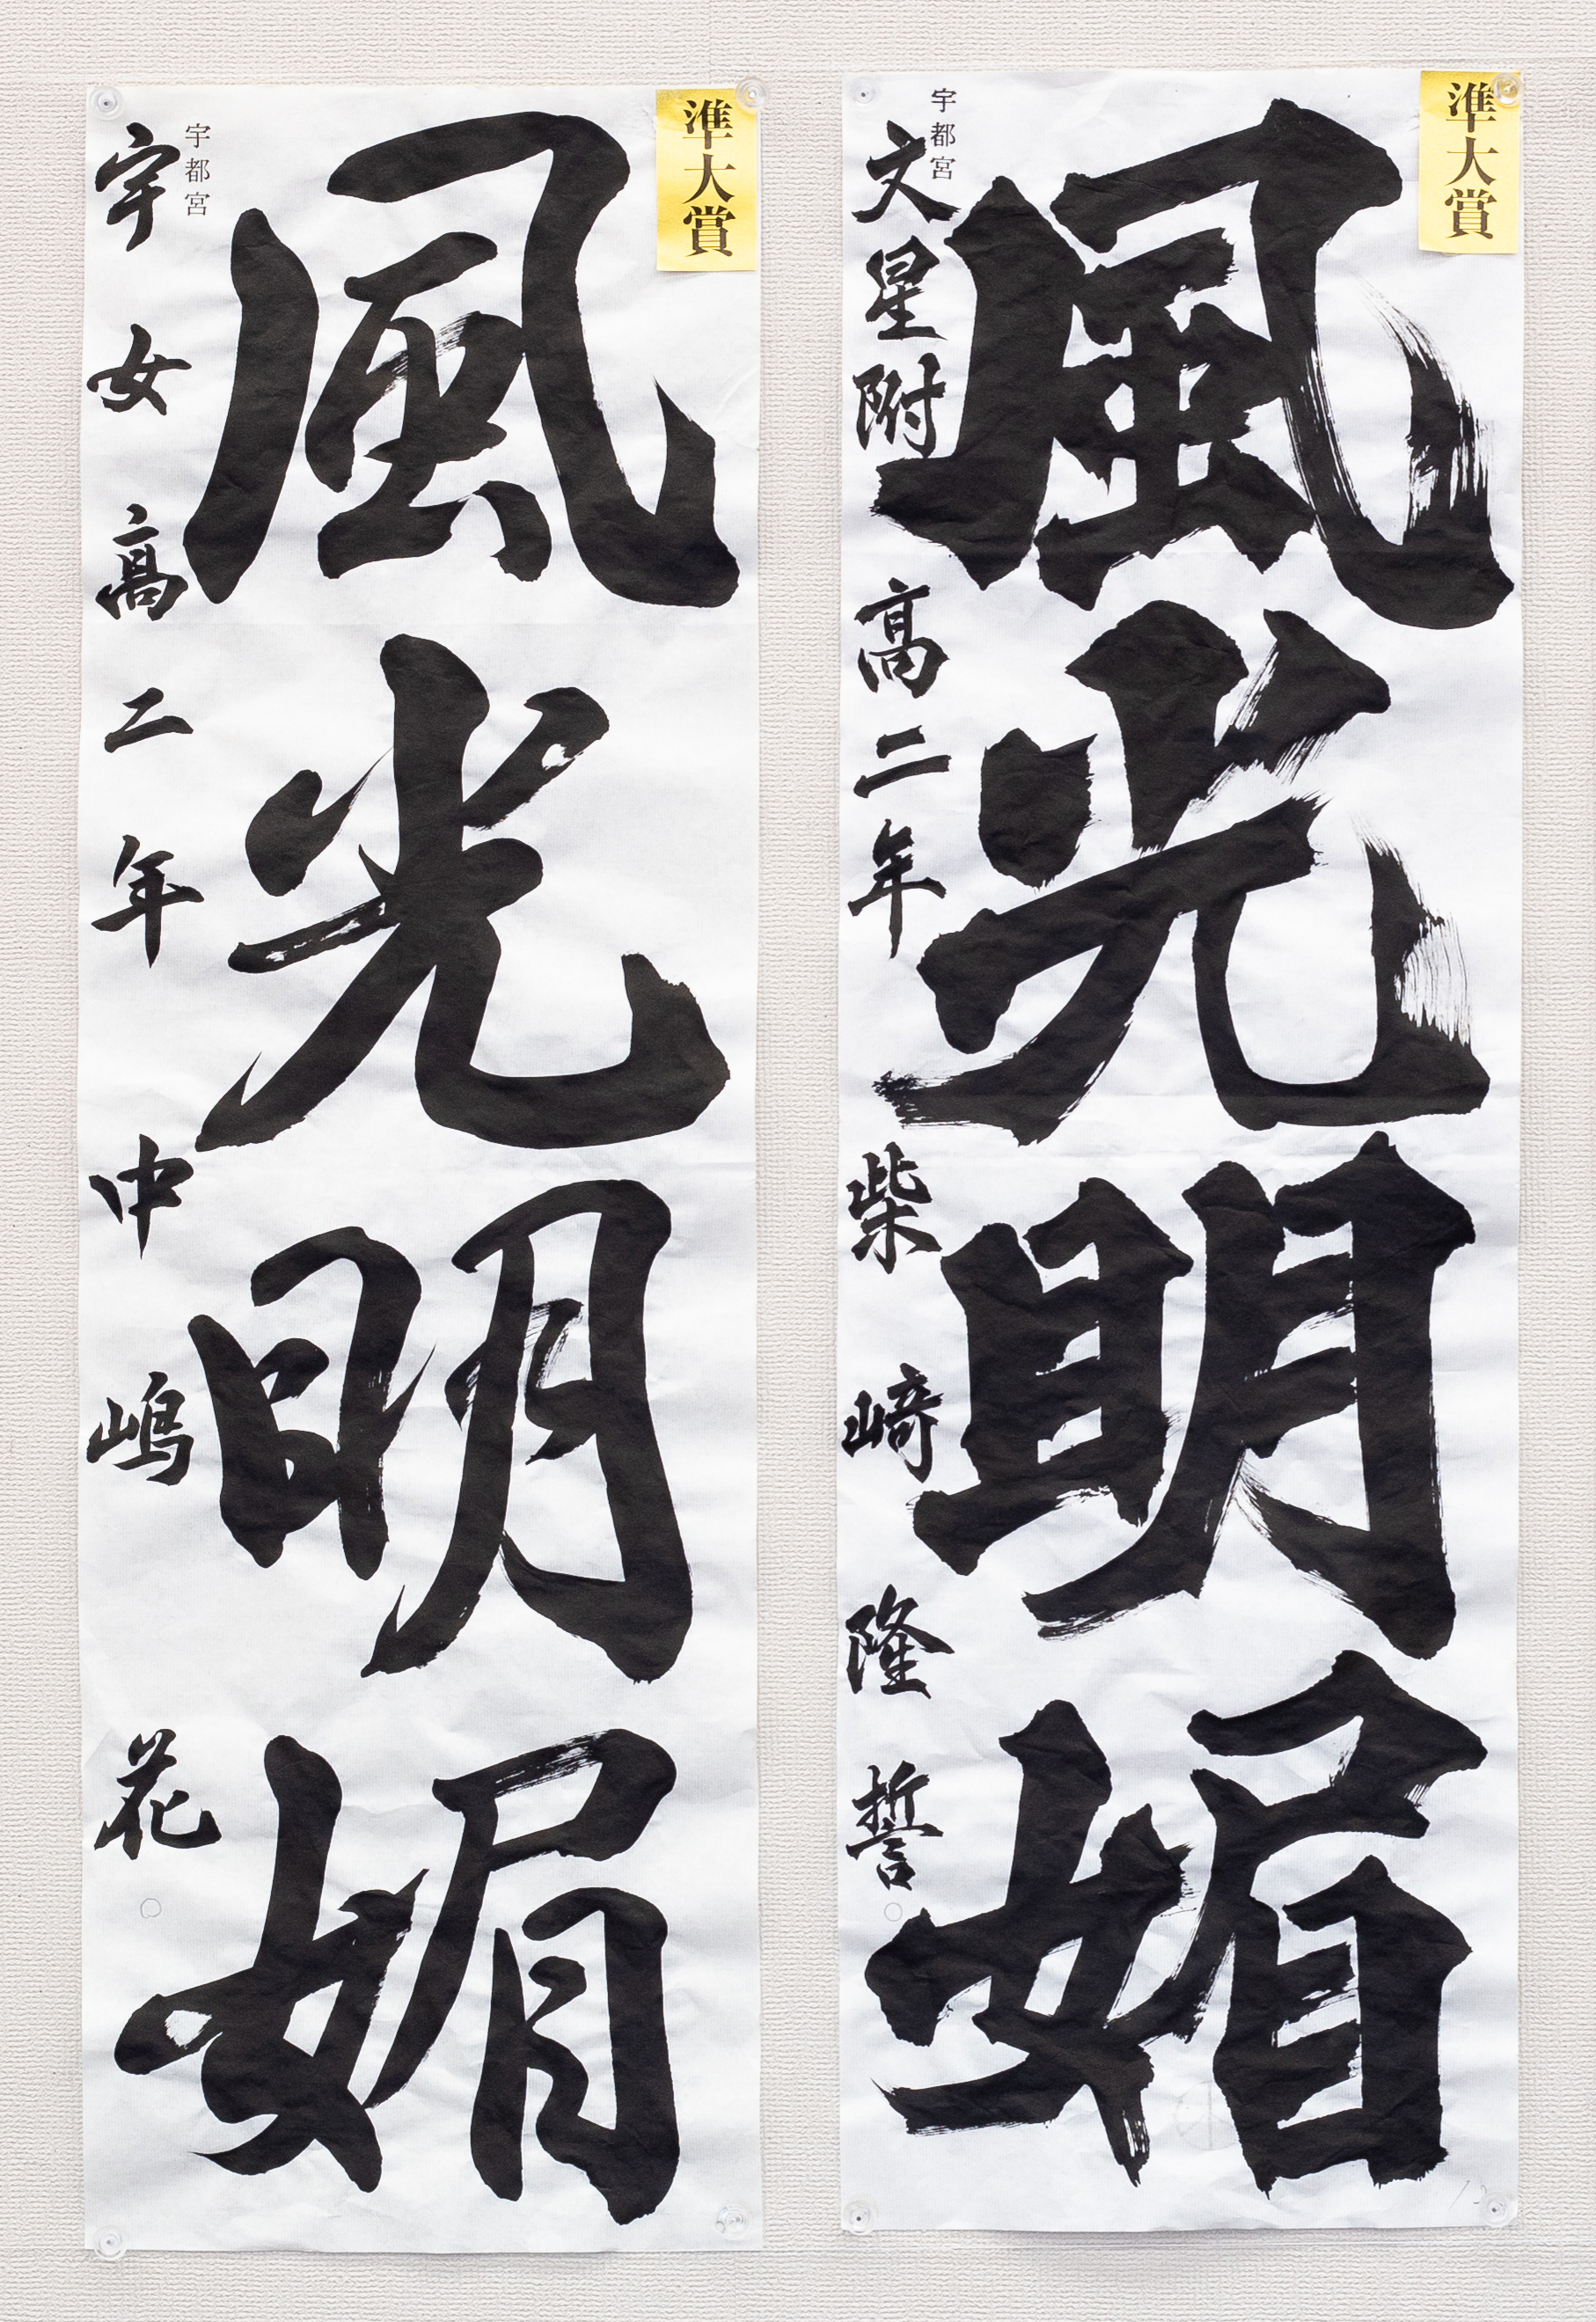 準大賞
風光明媚
宇都宮
文星附高二年 柴崎隆誓
準大賞
風光明媚
宇都宮
宇女高二年 中嶋花